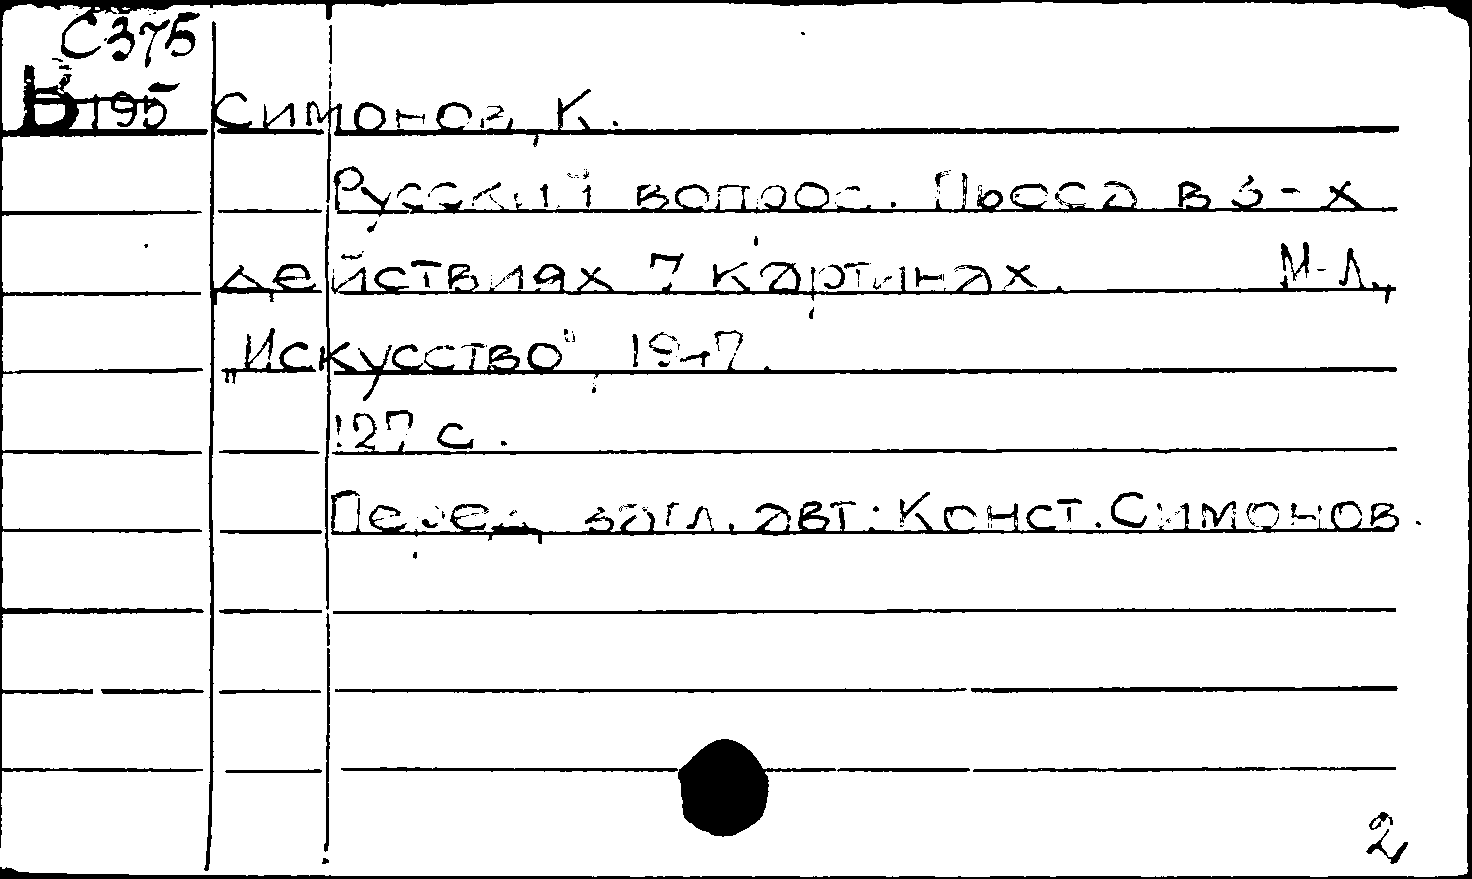 С375
В195 Симонов, К.
Русский вопрос. Пьеса в 3-х
действиях 7 картинах. М-Л.,
„Искусство", 1947.
127 с.
Перед загл. авт: Конст. Симонов.
2